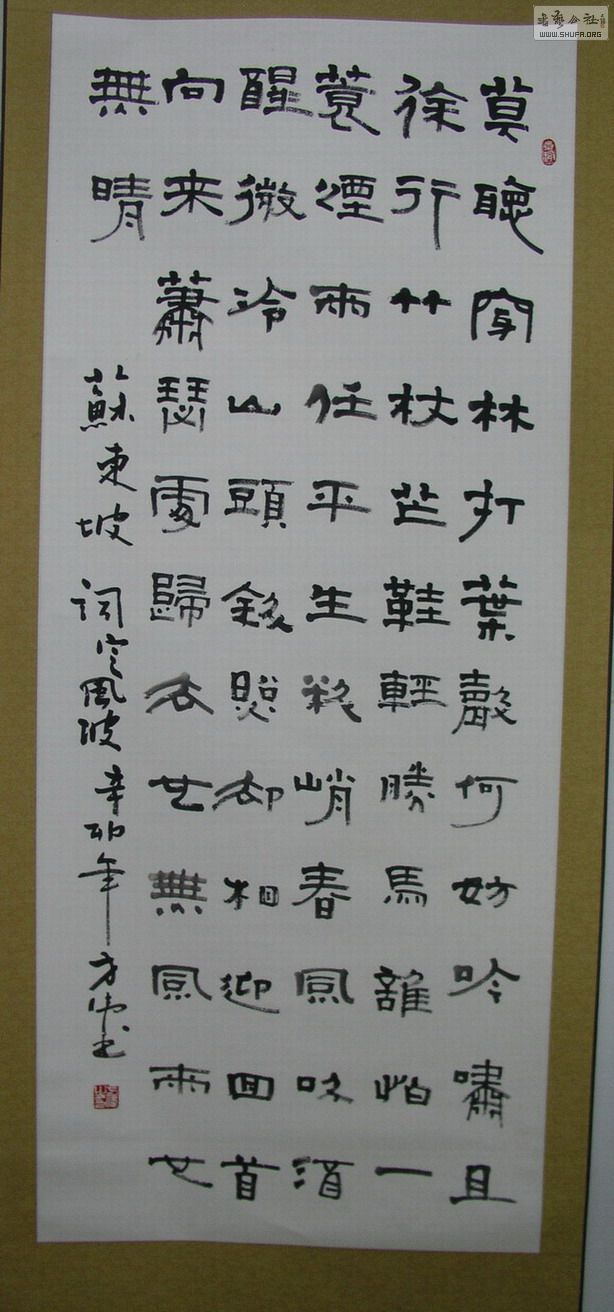 莫聽穿林打葉聲何妨吟嘯且
徐行竹杖芒鞋輕勝馬誰怕一
蓑煙雨任平生料峭春風吹酒
醒微冷山頭斜照却相迎回首
向来蕭瑟處歸去也無風雨也
無晴
蘇東坡詞定風波辛卯年方
書藝公社
WWW.SHUFA.ORG